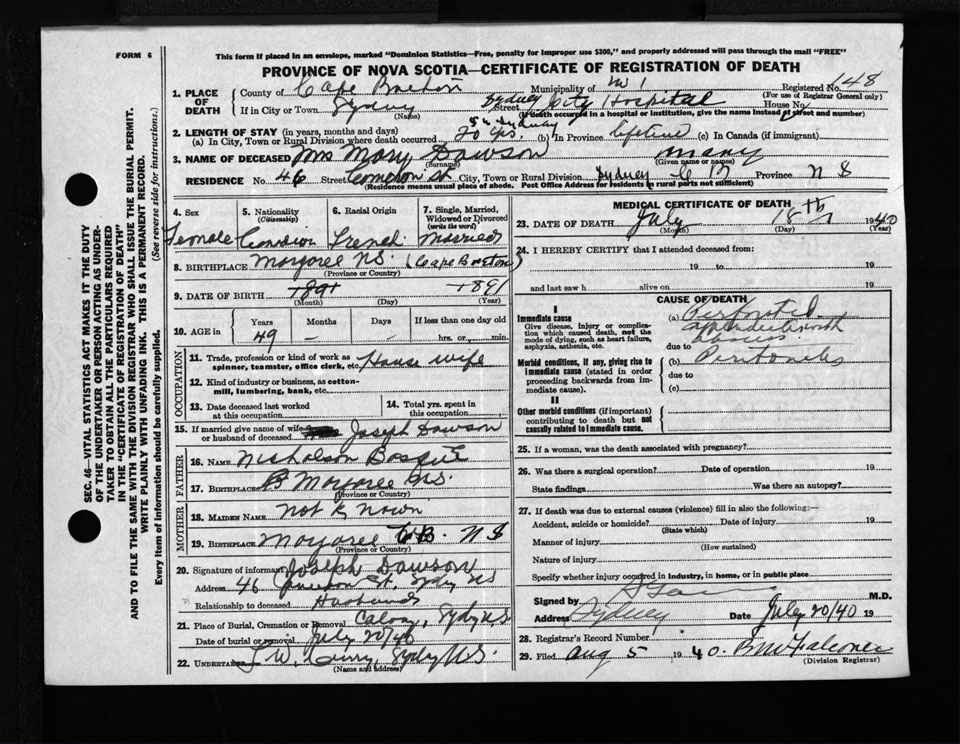 FORM 6
This form if placed in an envelope, marked "Dominion Statistics—Free, penalty for improper use $300," and properly addressed will pass through the mail "FREE"
PROVINCE OF NOVA SCOTIA—CERTIFICATE OF REGISTRATION OF DEATH
1. PLACE OF DEATH
County of Cape Breton Municipality of W 1 Registered No. 148
(For use of Registrar General only)
If in City or Town Sydney Street Sydney City Hospital House No.
(Name) (If death occurred in a hospital or institution, give the name instead of street and number)
2. LENGTH OF STAY (in years, months and days)
(a) In City, Town or Rural Division where death occurred, In Sydney 20 yrs. (b) In Province lifetime (c) In Canada (if immigrant)
3. NAME OF DECEASED Mrs Mary Dawson Mary
(Surname) (Given name or names)
RESIDENCE No. 46 Street St City, Town or Rural Division Sydney C B Province N S
(Residence means usual place of abode. Post Office Address for residents in rural parts not sufficient)
4. Sex Female
5. Nationality (Citizenship) Canadian
6. Racial Origin French
7. Single, Married, Widowed or Divorced (write the word) Married
8. BIRTHPLACE Margaree NS. (Cape Breton)
(Province or Country)
9. DATE OF BIRTH 1891 1891
(Month) (Day) (Year)
10. AGE in Years Months Days If less than one day old
49 - - hrs. or min.
OCCUPATION
11. Trade, profession or kind of work as spinner, teamster, office clerk, etc. House wife
12. Kind of industry or business, as cotton-mill, lumbering, bank, etc.
13. Date deceased last worked at this occupation
14. Total yrs. spent in this occupation
15. If married give name of wife or husband of deceased Joseph Dawson
FATHER
16. Name Nicholson
17. Birthplace B Margaree N.S.
(Province or Country)
MOTHER
18. MAIDEN NAME Not Known
19. BIRTHPLACE Margaree C.B. N S
(Province or Country)
20. Signature of informant Joseph Dawson
Address 46 St. Sydney NS
Relationship to deceased Husband
21. Place of Burial, Cremation or Removal Sydney N.S.
Date of burial or removal July 20/40
22. UNDERTAKER Sydney N.S.
(Name and address)
MEDICAL CERTIFICATE OF DEATH
23. DATE OF DEATH July 18th 1940
(Month) (Day) (Year)
24. I HEREBY CERTIFY that I attended deceased from:
19 to 19
and last saw h alive on 19
CAUSE OF DEATH
I
Immediate cause
Give disease, injury or complication which caused death, not the mode of dying, such as heart failure, asphyxia, asthenia, etc.
(a) Perforated appendix with abscess
due to
Morbid conditions, if any, giving rise to immediate cause (stated in order proceeding backwards from immediate cause).
(b) Peritonitis
due to
(c)
II
Other morbid conditions (if important) contributing to death but not causally related to immediate cause.
25. If a woman, was the death associated with pregnancy?
26. Was there a surgical operation? Date of operation 19
State findings Was there an autopsy?
27. If death was due to external causes (violence) fill in also the following:—
Accident, suicide or homicide? Date of injury 19
(State which)
Manner of injury
(How sustained)
Nature of injury
Specify whether injury occurred in industry, in home, or in public place
Signed by M.D.
Address Sydney Date July 20/40 19
28. Registrar's Record Number
29. Filed Aug 5 1940.
(Division Registrar)
SEC. 46—VITAL STATISTICS ACT MAKES IT THE DUTY OF THE UNDERTAKER OR PERSON ACTING AS UNDERTAKER TO OBTAIN ALL THE PARTICULARS REQUIRED IN THE "CERTIFICATE OF REGISTRATION OF DEATH" AND TO FILE THE SAME WITH THE DIVISION REGISTRAR WHO SHALL ISSUE THE BURIAL PERMIT.
WRITE PLAINLY WITH UNFADING INK. THIS IS A PERMANENT RECORD.
Every item of information should be carefully supplied. (See reverse side for instructions.)